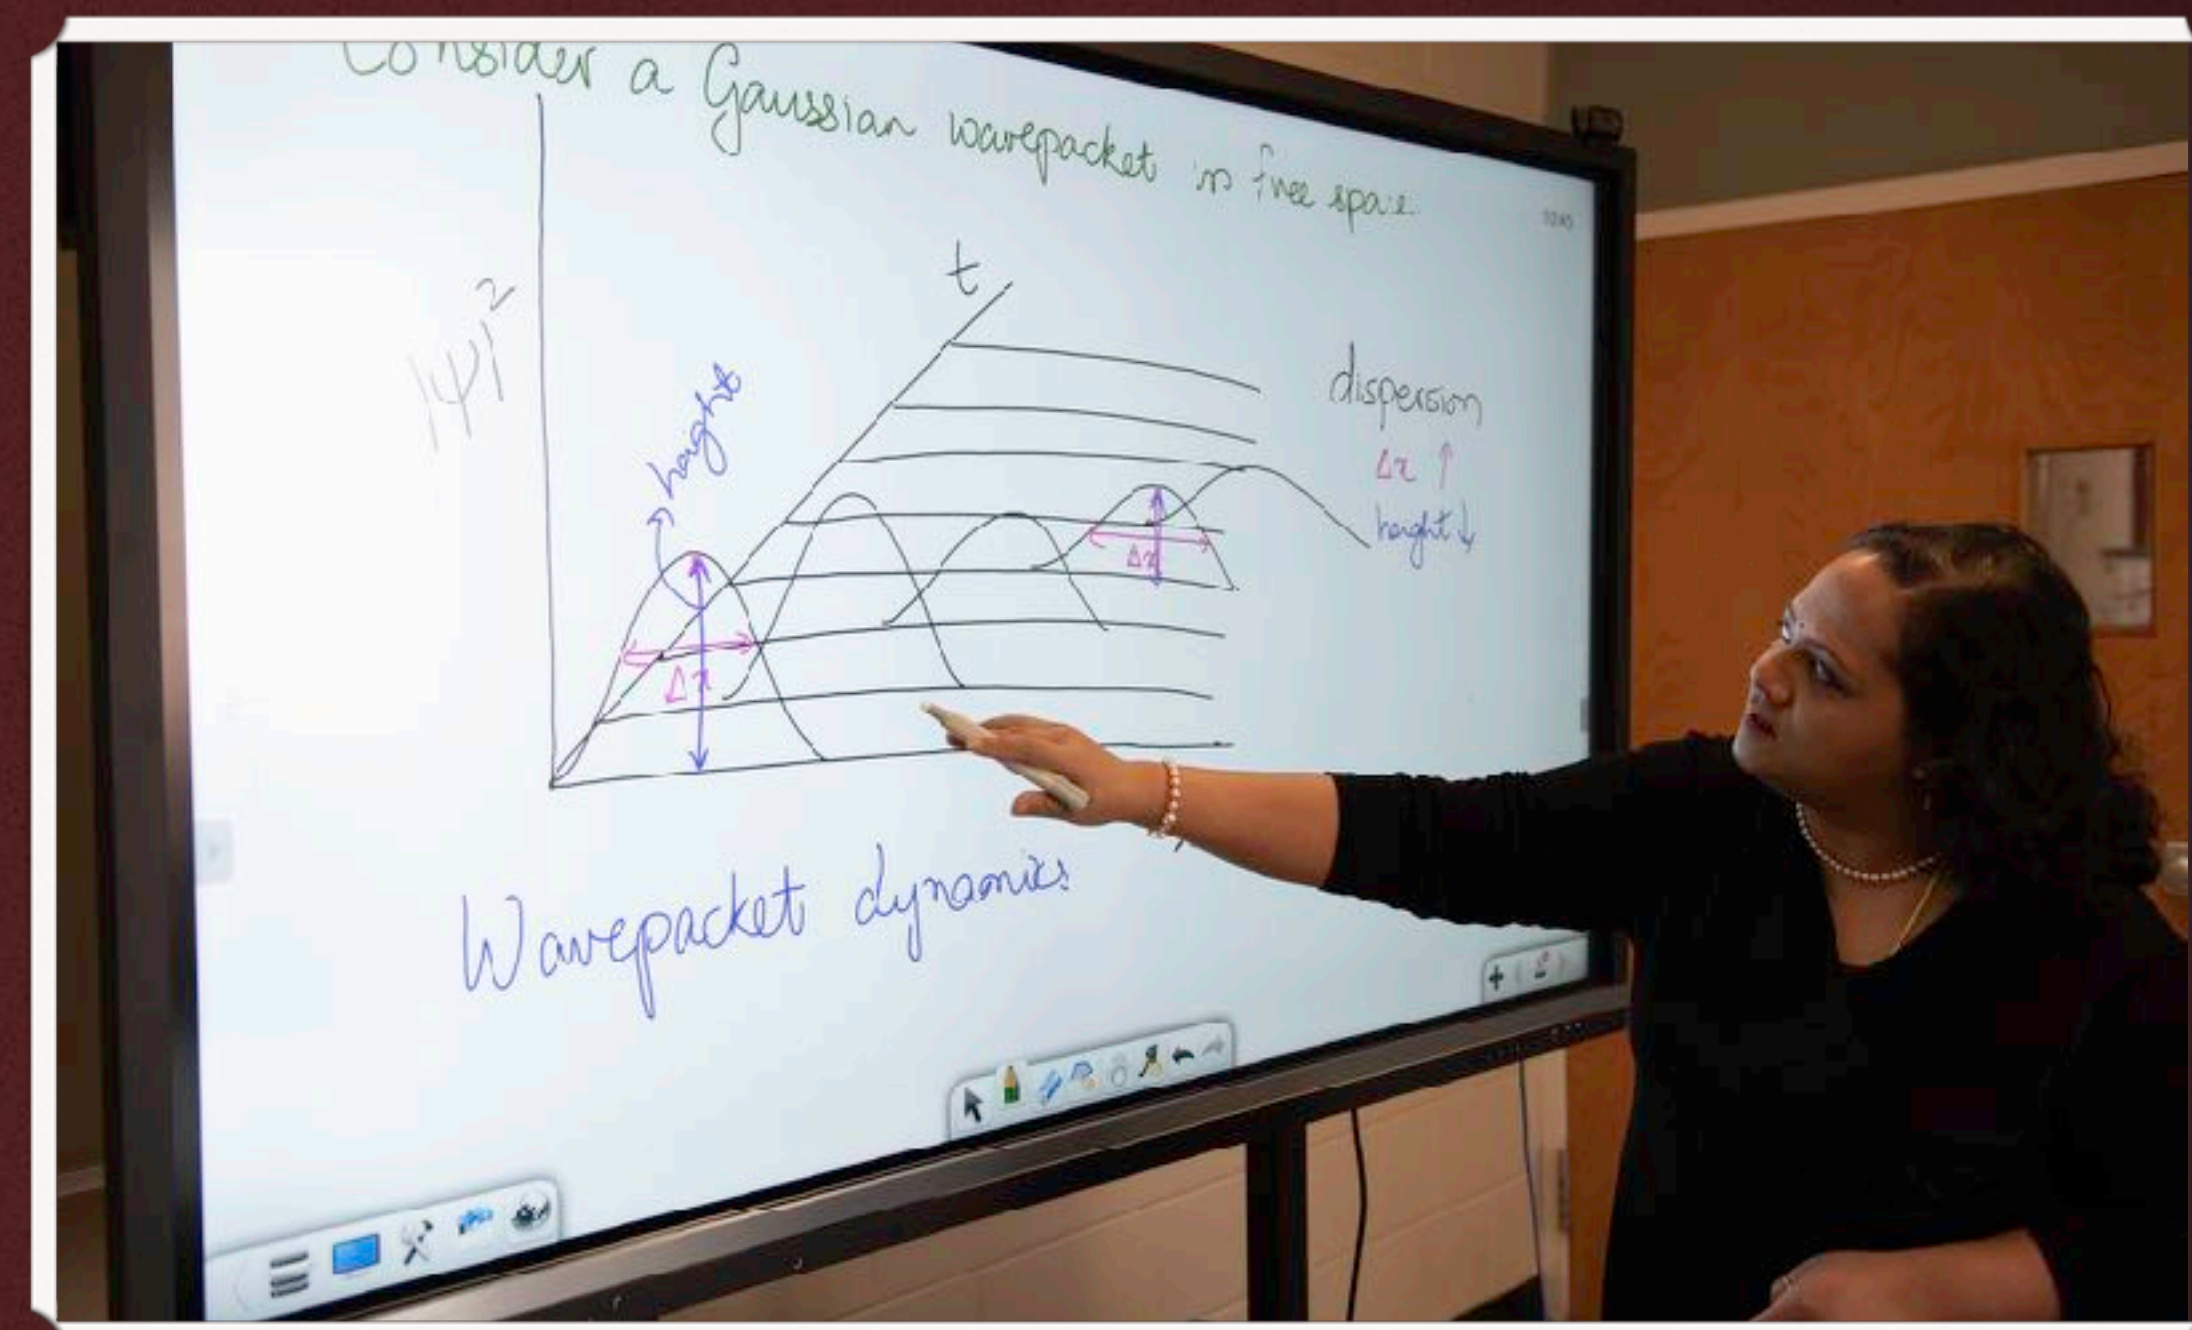 Consider a Gaussian wavepacket in free space.
10:45
t
|ψ|²
height
dispersion
Δx ↑
height ↓
Δx
Δx
Wavepacket dynamics